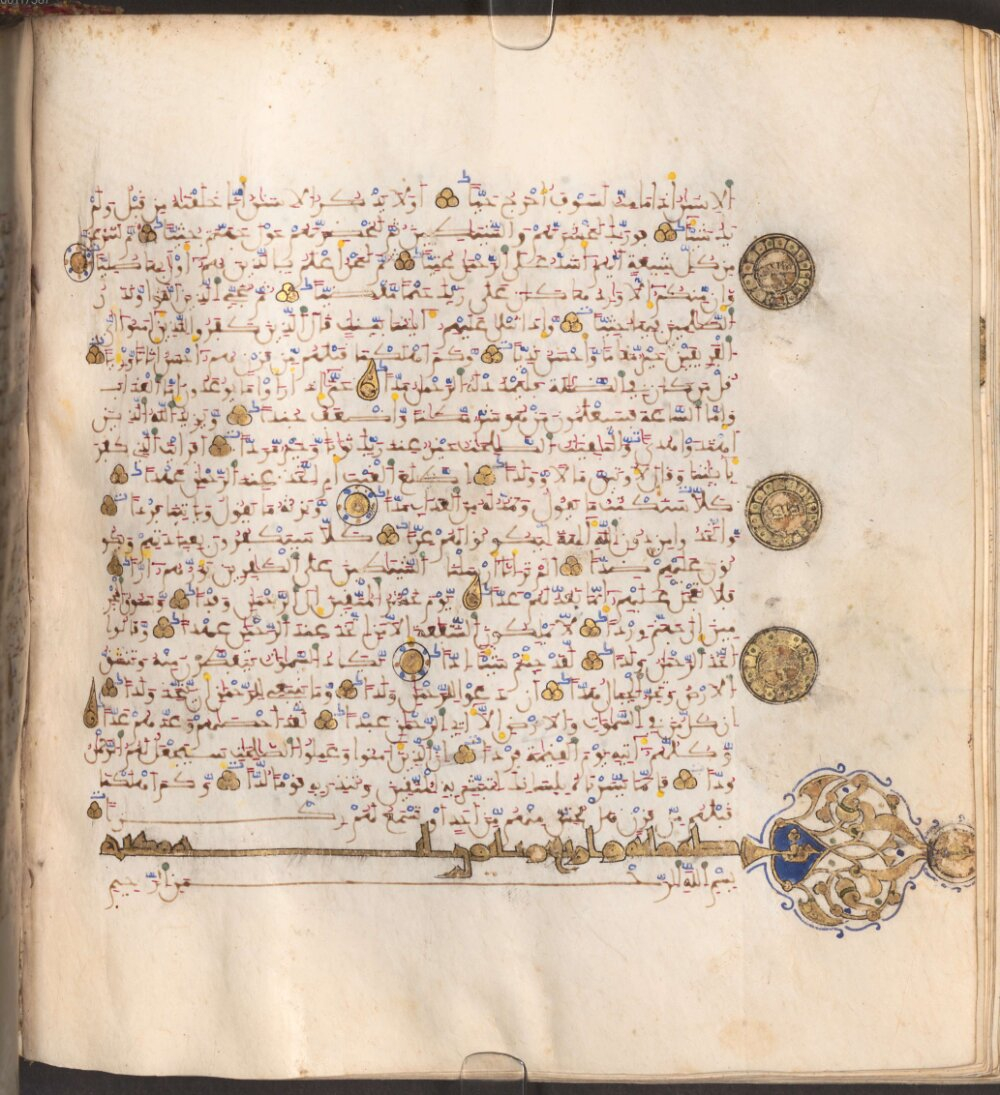 الانسن أ۟ذا ما مت لسوف أخرج حيا أولا يذكر الانسن أنا خلقنه من قبل ولم
يك شيئا فوربك لنحشرنهم والشيطين ثم لنحضرنهم حول جهنم جثيا ثم لننزعن
من كل شيعة أيهم أشد على الرحمن عتيا ثم لنحن أعلم بالذين هم أولى بها صليا
وإن منكم إلا واردها كان على ربك حتما مقضيا ثم ننجي الذين اتقوا ونذر
الظلمين فيها جثيا وإذا تتلى عليهم ءايتنا بينت قال الذين كفروا للذين ءامنوا أي
الفريقين خير مقاما وأحسن نديا وكم أهلكنا قبلهم من قرن هم أحسن أثثا وريا
قل من كان في الضللة فليمدد له الرحمن مدا حتى إذا رأوا ما يوعدون إما العذاب
وإما الساعة فسيعلمون من هو شر مكانا وأضعف جندا ويزيد الله الذين
اهتدوا هدى والبقيت الصلحت خير عند ربك ثوابا وخير مردا أفرأيت الذي كفر
بايتنا وقال لأوتين مالا وولدا أطلع الغيب أم اتخذ عند الرحمن عهدا
كلا سنكتب ما يقول ونمد له من العذاب مدا ونرثه ما يقول وياتينا فردا
واتخذوا من دون الله ءالهة ليكونوا لهم عزا كلا سيكفرون بعبادتهم ويكو
نون عليهم ضدا ألم تر أنا أرسلنا الشيطين على الكفرين تؤزهم أزا
فلا تعجل عليهم إنما نعد لهم عدا يوم نحشر المتقين إلى الرحمن وفدا ونسوق المجر
مين إلى جهنم وردا لا يملكون الشفعة إلا من اتخذ عند الرحمن عهدا وقالوا
اتخذ الرحمن ولدا لقد جئتم شيئا إدا يكاد السموات يتفطرن منه وتنشق
الارض وتخر الجبال هدا أن دعوا للرحمن ولدا وما ينبغي للرحمن أن يتخذ ولدا
إن كل من في السموات والارض إلا ءاتي الرحمن عبدا لقد أحصيهم وعدهم عدا
وكلهم ءاتيه يوم القيمة فردا إن الذين ءامنوا وعملوا الصلحت سيجعل لهم الرحمن
ودا فإنما يسرنه بلسانك لتبشر به المتقين وتنذر به قوما لدا وكم أهلكنا
قبلهم من قرن هل تحس منهم من أحد أو تسمع لهم ركزا
بسم الله الرحمن الرحيم